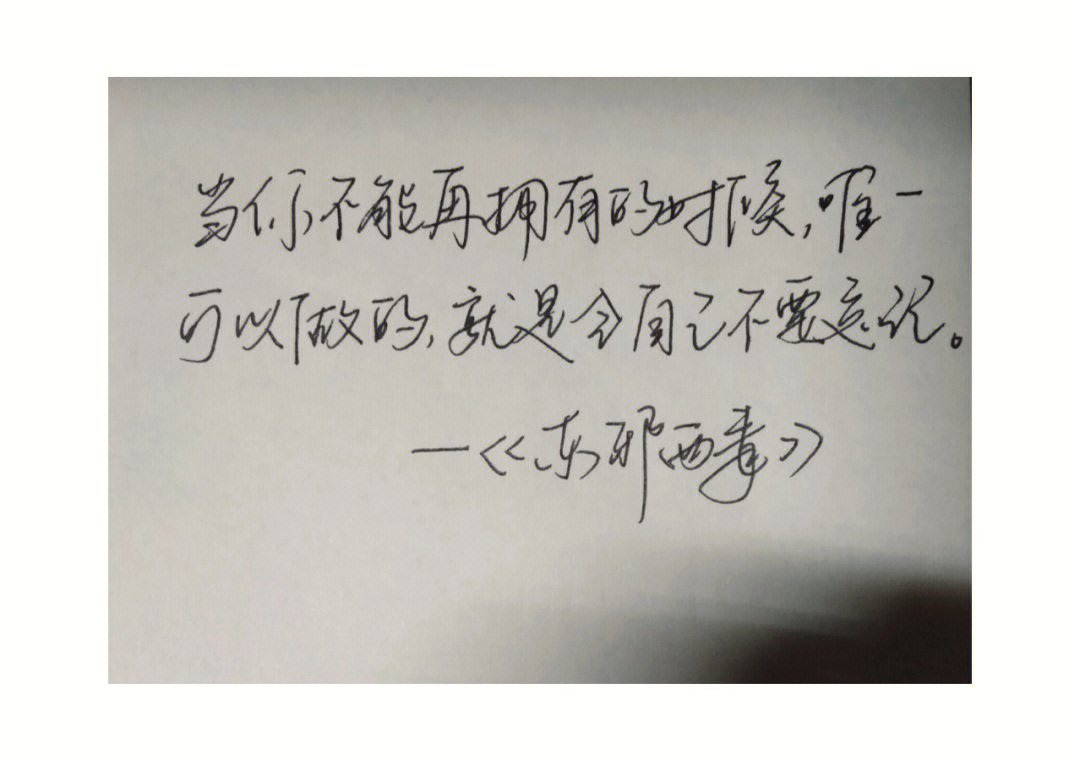 当你不能再拥有的时候,唯一
可以做的,就是令自己不要忘记。
—《东邪西毒》